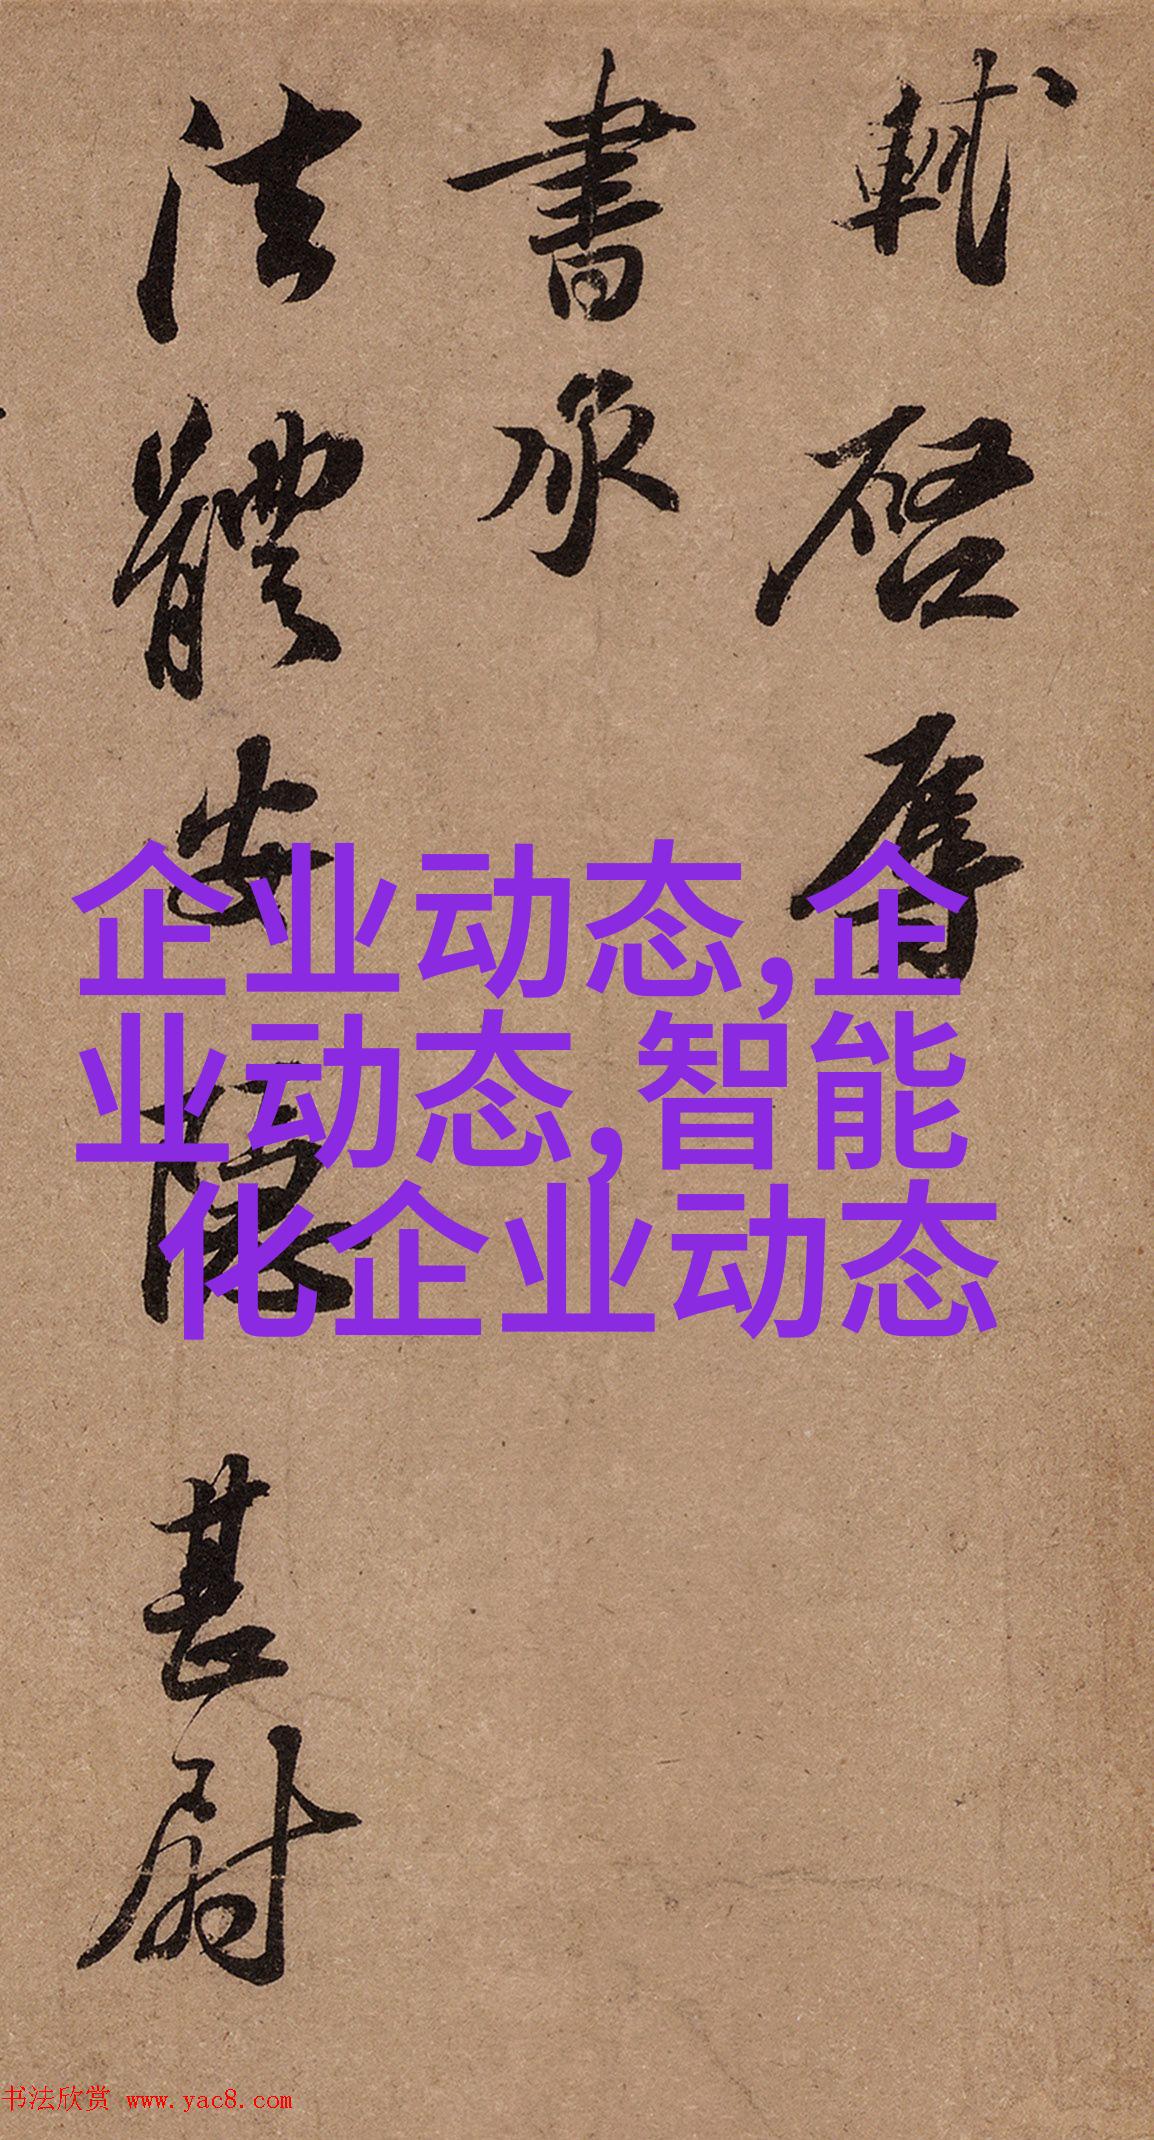 軾啓辱
書承
法體安隱甚慰
企业动态,企
业动态,智能
化企业动态
书法欣赏 www.yac8.com